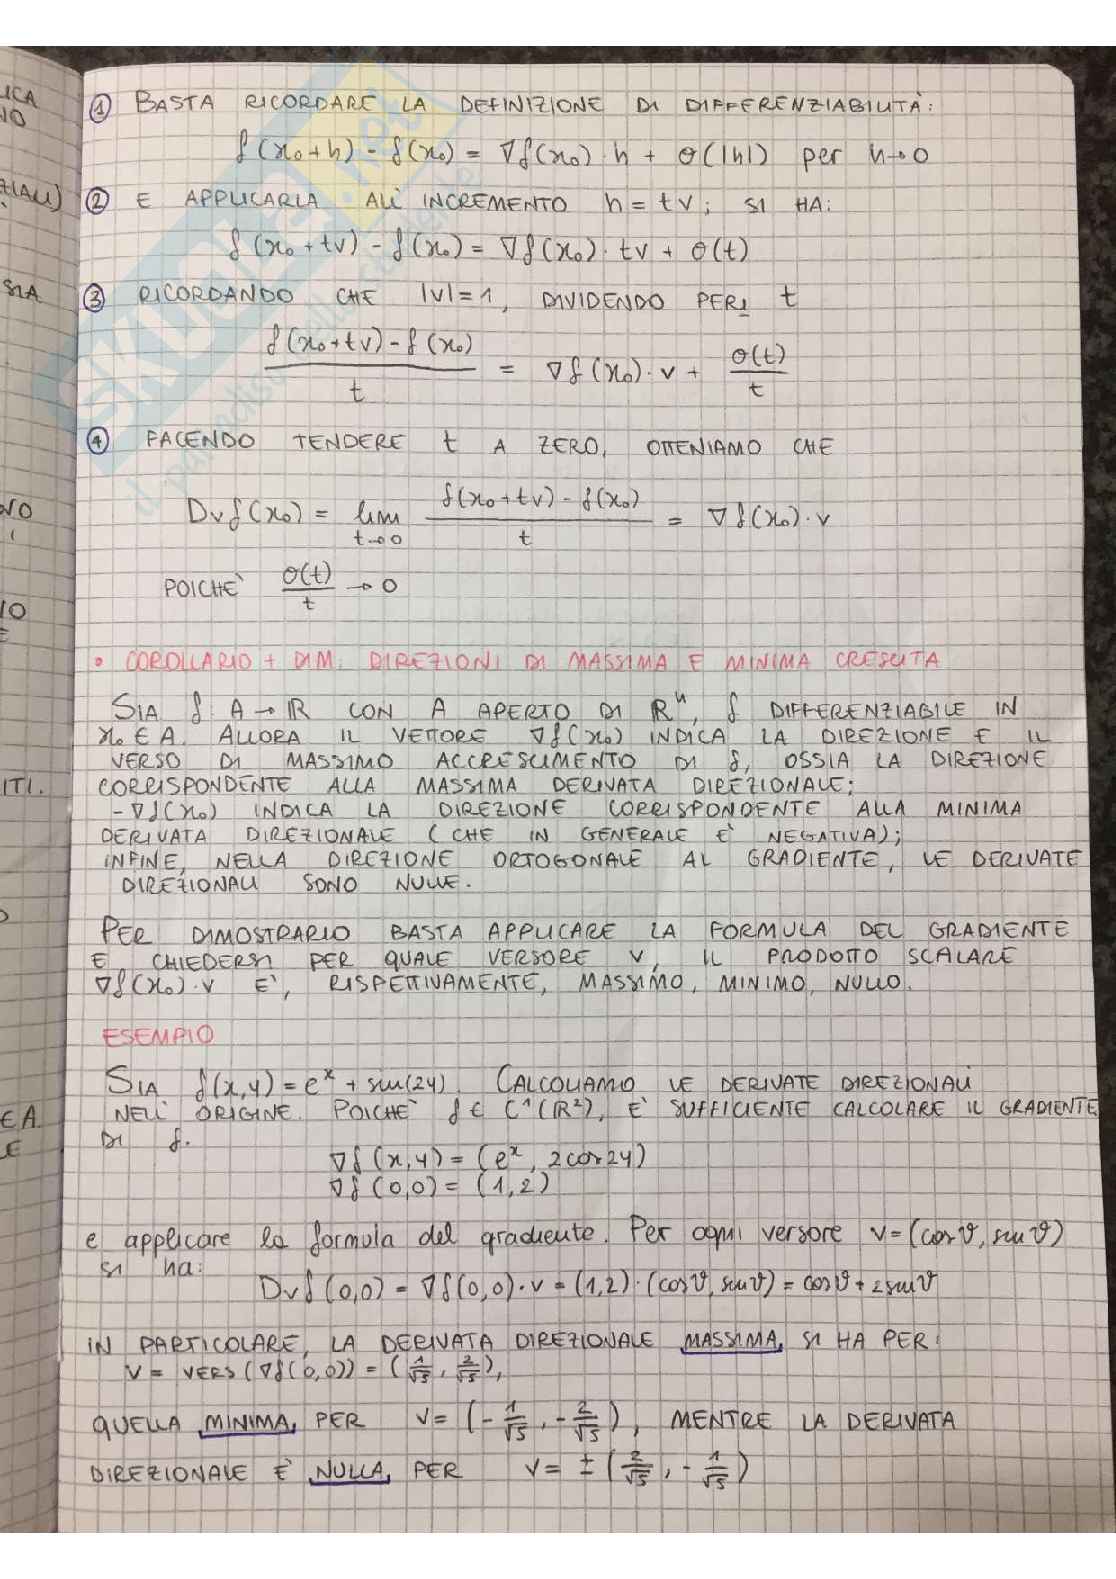 ① BASTA RICORDARE LA DEFINIZIONE DI DIFFERENZIABILITÀ:
f(x₀+h) - f(x₀) = ∇f(x₀)·h + o(|h|) per h→0
② E APPLICARLA ALL'INCREMENTO h = tv; SI HA:
f(x₀+tv) - f(x₀) = ∇f(x₀)·tv + o(t)
③ RICORDANDO CHE |v|=1, DIVIDENDO PER t
(f(x₀+tv) - f(x₀))/t = ∇f(x₀)·v + o(t)/t
④ FACENDO TENDERE t A ZERO, OTTENIAMO CHE
Dvf(x₀) = lim t→0 (f(x₀+tv) - f(x₀))/t = ∇f(x₀)·v
POICHÈ o(t)/t → 0
• COROLLARIO + DIM. DIREZIONI DI MASSIMA E MINIMA CRESCITA
SIA f: A→ℝ CON A APERTO DI ℝⁿ, f DIFFERENZIABILE IN
x₀ ∈ A. ALLORA IL VETTORE ∇f(x₀) INDICA LA DIREZIONE E IL
VERSO DI MASSIMO ACCRESCIMENTO DI f, OSSIA LA DIREZIONE
CORRISPONDENTE ALLA MASSIMA DERIVATA DIREZIONALE;
-∇f(x₀) INDICA LA DIREZIONE CORRISPONDENTE ALLA MINIMA
DERIVATA DIREZIONALE (CHE IN GENERALE È NEGATIVA);
INFINE, NELLA DIREZIONE ORTOGONALE AL GRADIENTE, LE DERIVATE
DIREZIONALI SONO NULLE.
PER DIMOSTRARLO BASTA APPLICARE LA FORMULA DEL GRADIENTE
E CHIEDERSI PER QUALE VERSORE v, IL PRODOTTO SCALARE
∇f(x₀)·v È, RISPETTIVAMENTE, MASSIMO, MINIMO, NULLO.
ESEMPIO
SIA f(x,y) = eˣ + sin(2y). CALCOLIAMO LE DERIVATE DIREZIONALI
NELL'ORIGINE. POICHÈ f ∈ C¹(ℝ²), È SUFFICIENTE CALCOLARE IL GRADIENTE
DI f.
∇f(x,y) = (eˣ, 2cos2y)
∇f(0,0) = (1,2)
e applicare la formula del gradiente. Per ogni versore v=(cosϑ, sinϑ)
si ha:
Dvf(0,0) = ∇f(0,0)·v = (1,2)·(cosϑ, sinϑ) = cosϑ+2sinϑ
IN PARTICOLARE, LA DERIVATA DIREZIONALE MASSIMA, SI HA PER:
v = VERS(∇f(0,0)) = (1/√5, 2/√5),
QUELLA MINIMA, PER v = (-1/√5, -2/√5), MENTRE LA DERIVATA
DIREZIONALE È NULLA, PER v = ±(2/√5, -1/√5)
SKUOLA.net